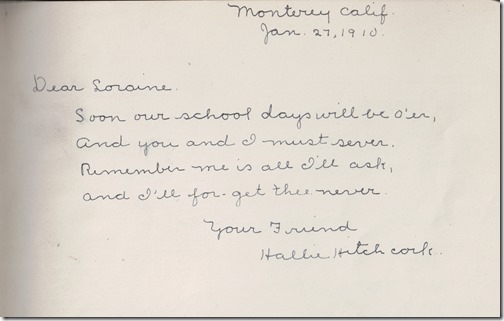 Monterey Calif.
Jan. 27, 1910.
Dear Loraine.
Soon our school days will be o'er,
And you and I must sever.
Remember me is all I'll ask,
and I'll for-get thee never.
Your Friend
Hallie Hitchcock.